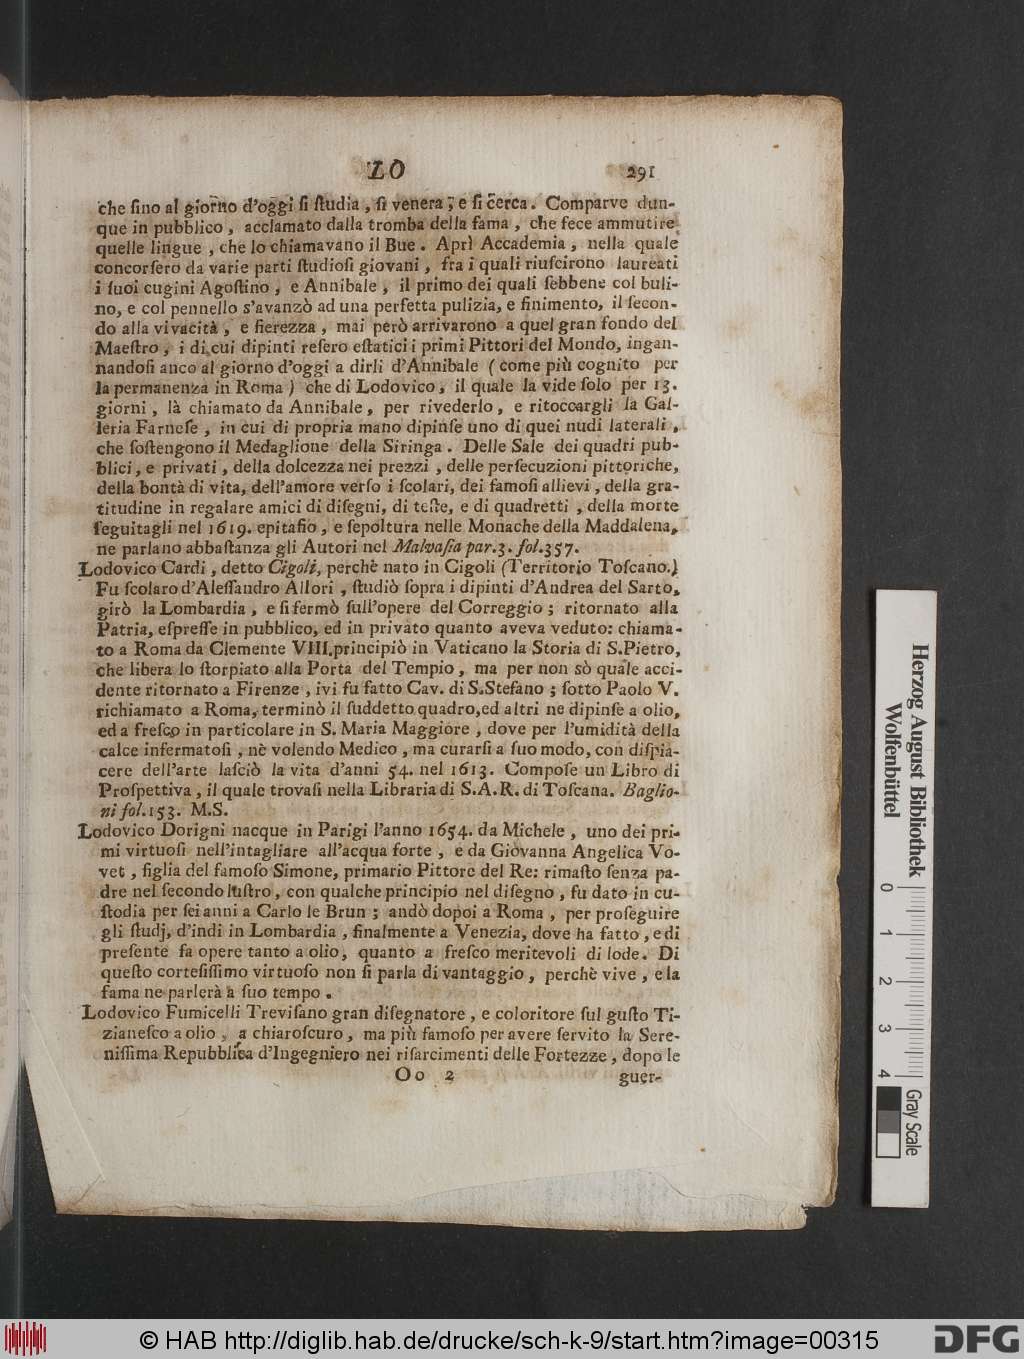 LO 291
che ſino al giorno d'oggi ſi ſtudia, ſi venera, e ſi cerca. Comparve dun-
que in pubblico, acclamato dalla tromba della fama, che fece ammutire
quelle lingue, che lo chiamavano il Bue. Aprì Accademia, nella quale
concorſero da varie parti ſtudioſi giovani, fra i quali riuſcirono laureati
i ſuoi cugini Agoſtino, e Annibale, il primo dei quali ſebbene col buli-
no, e col pennello s'avanzò ad una perfetta pulizia, e finimento, il ſecon-
do alla vivacità, e fierezza, mai però arrivarono a quel gran fondo del
Maeſtro, i di cui dipinti reſero eſtatici i primi Pittori del Mondo, ingan-
nandoſi anco al giorno d'oggi a dirli d'Annibale (come più cognito per
la permanenza in Roma) che di Lodovico, il quale la vide ſolo per 13.
giorni, là chiamato da Annibale, per rivederlo, e ritoccargli la Gal-
leria Farneſe, in cui di propria mano dipinſe uno di quei nudi laterali,
che ſoſtengono il Medaglione della Siringa. Delle Sale dei quadri pub-
blici, e privati, della dolcezza nei prezzi, delle perſecuzioni pittoriche,
della bontà di vita, dell'amore verſo i ſcolari, dei famoſi allievi, della gra-
titudine in regalare amici di diſegni, di teſte, e di quadretti, della morte
ſeguitagli nel 1619. epitafio, e ſepoltura nelle Monache della Maddalena,
ne parlano abbaſtanza gli Autori nel Malvaſia par.3. fol.357.
Lodovico Cardi, detto Cigoli, perchè nato in Cigoli (Territorio Toſcano.)
Fu ſcolaro d'Aleſſandro Allori, ſtudiò ſopra i dipinti d'Andrea del Sarto,
girò la Lombardia, e ſi fermò ſull'opere del Correggio; ritornato alla
Patria, eſpreſſe in pubblico, ed in privato quanto aveva veduto: chiama-
to a Roma da Clemente VIII. principiò in Vaticano la Storia di S. Pietro,
che libera lo ſtorpiato alla Porta del Tempio, ma per non sò quale acci-
dente ritornato a Firenze, ivi fu fatto Cav. di S. Stefano; ſotto Paolo V.
richiamato a Roma, terminò il ſuddetto quadro, ed altri ne dipinſe a olio,
ed a freſco in particolare in S. Maria Maggiore, dove per l'umidità della
calce infermatoſi, nè volendo Medico, ma curarſi a ſuo modo, con diſpia-
cere dell'arte laſciò la vita d'anni 54. nel 1613. Compoſe un Libro di
Proſpettiva, il quale trovaſi nella Libraria di S.A.R. di Toſcana. Baglio-
ni fol.153. M.S.
Lodovico Dorigni nacque in Parigi l'anno 1654. da Michele, uno dei pri-
mi virtuoſi nell'intagliare all'acqua forte, e da Giovanna Angelica Vo-
vet, figlia del famoſo Simone, primario Pittore del Re: rimaſto ſenza pa-
dre nel ſecondo luſtro, con qualche principio nel diſegno, fu dato in cu-
ſtodia per ſei anni a Carlo le Brun; andò dopoi a Roma, per proſeguire
gli ſtudj, d'indi in Lombardia, finalmente a Venezia, dove ha fatto, e di
preſente fa opere tanto a olio, quanto a freſco meritevoli di lode. Di
queſto corteſiſſimo virtuoſo non ſi parla di vantaggio, perchè vive, e la
fama ne parlerà a ſuo tempo.
Lodovico Fumicelli Treviſano gran diſegnatore, e coloritore ſul guſto Ti-
zianeſco a olio, a chiaroſcuro, ma più famoſo per avere ſervito la Sere-
niſſima Repubblica d'Ingegniero nei riſarcimenti delle Fortezze, dopo le
Oo 2 guer-
Herzog August Bibliothek
Wolfenbüttel
0 1 2 3 4
Gray Scale
© HAB http://diglib.hab.de/drucke/sch-k-9/start.htm?image=00315
DFG